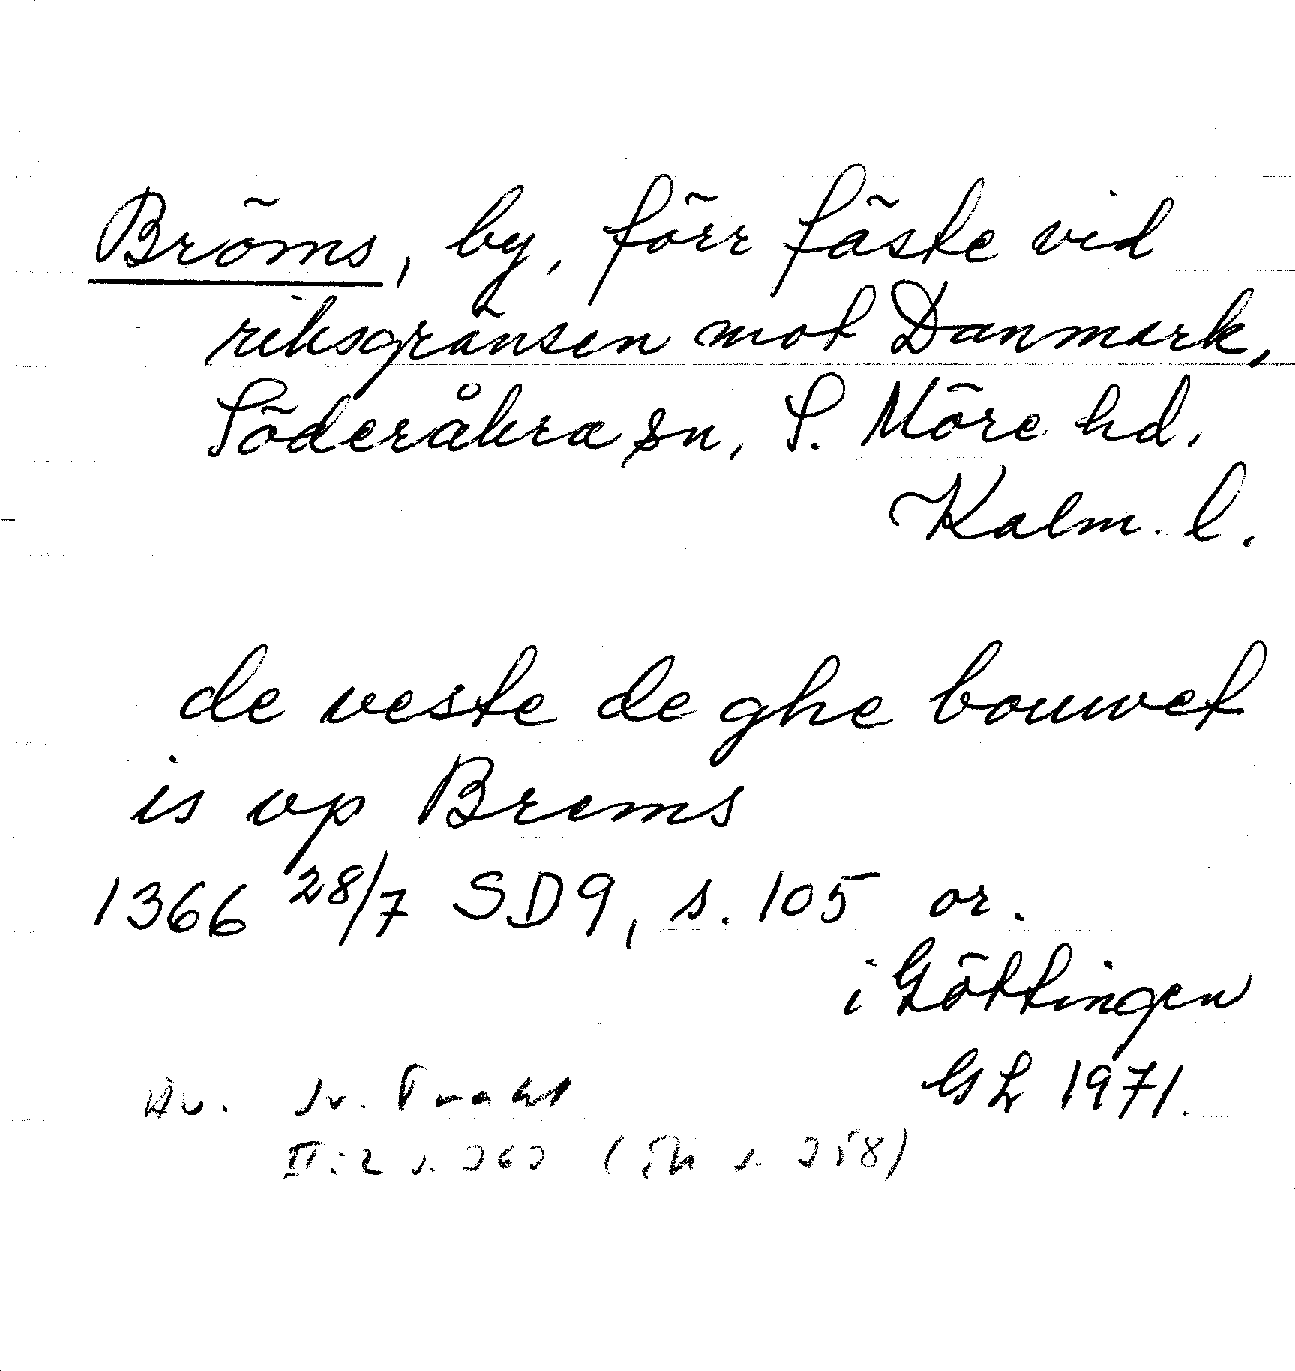 Bröms, by, förr fäste vid
riksgränsen mot Danmark,
Söderåkra sn, S. Möre hd.
Kalm. l.
de veste de ghe bouwet
is vp Brems
1366 28/7 SD9, s. 105 or.
i Göttingen
GL 1971.
Av. Sv. Trakt
II:2 s. 363 (jfr s. 358)